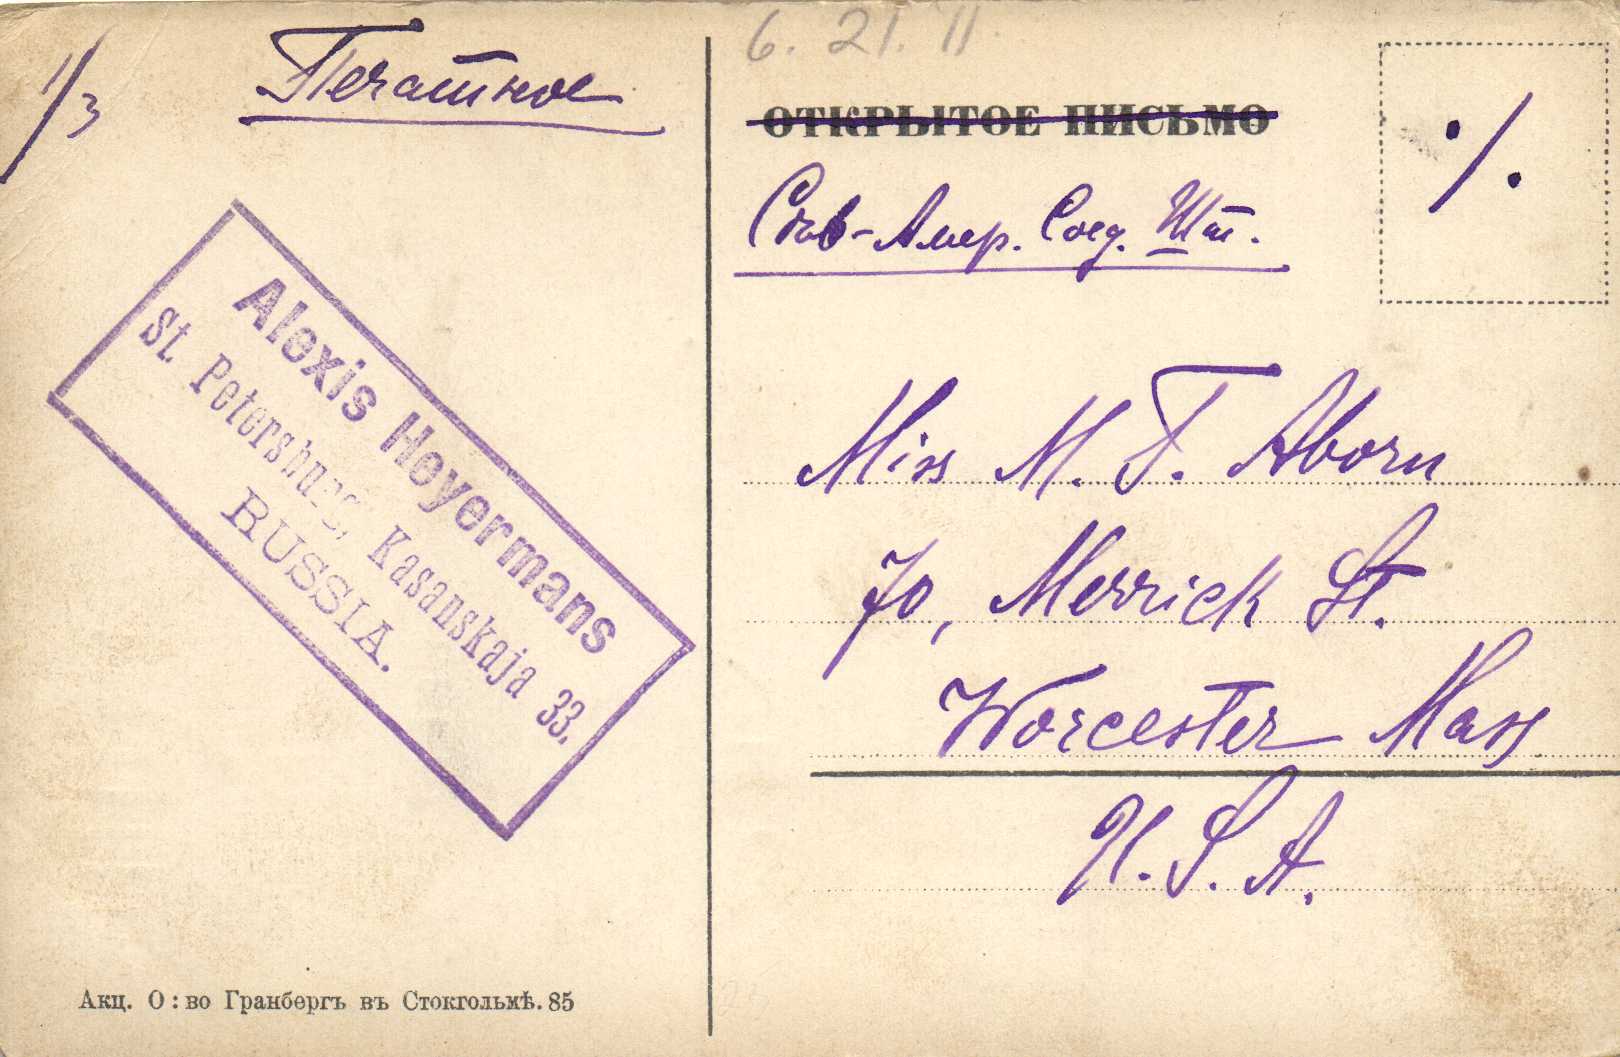 1/3
Печатное
6. 21. 11.
ОТКРЫТОЕ ПИСЬМО
Сѣв-Амер. Соед. Шт.
·/.
Miss M. F. Aborn
70, Merrick St.
Worcester Mass
U. S. A.
Alexis Heyermans
St. Petersburg, Kasanskaja 33.
RUSSIA.
Акц. О:во Гранбергъ въ Стокгольмѣ. 85